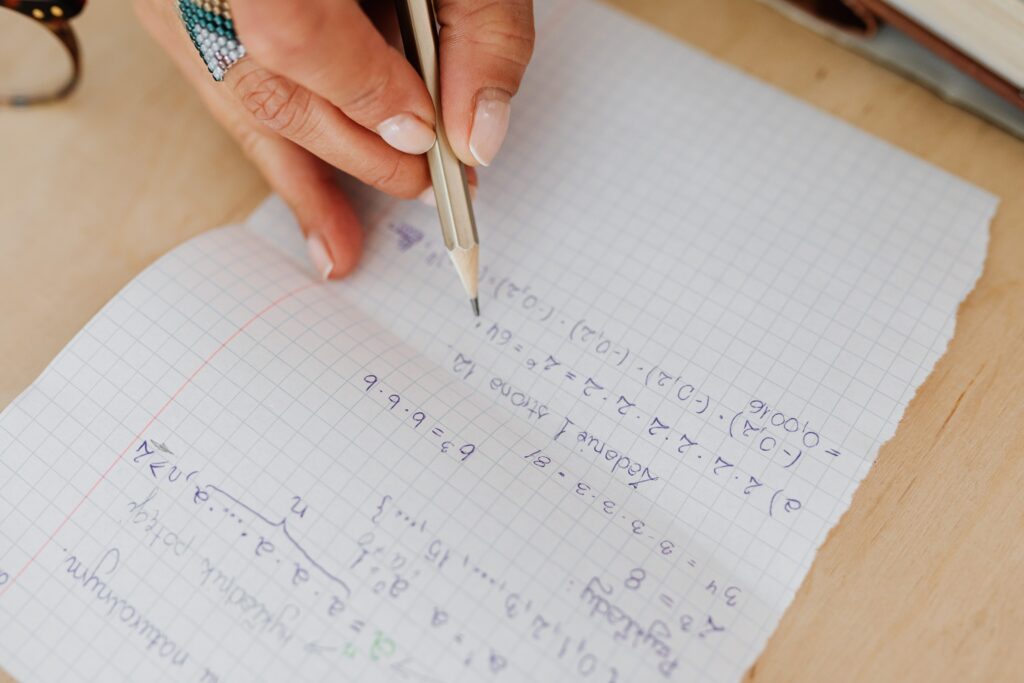 naturalnym.
a → wykładnik potęgi
= a · a · a · .... · a, n > 2
n
a¹ = a a⁰ = 1
a ≠ 0
0, 1, 2, 3, ..., 15, ...}
Przykłady:
2³ = 8
3⁴ = 3 · 3 · 3 · 3 = 81 b³ = b · b · b
Zadanie 1 strona 12.
a) 2 · 2 · 2 · 2 · 2 · 2 = 2⁶ = 64
(-0,2) · (-0,2) · (-0,2) · (-0,2)
= 0,0016